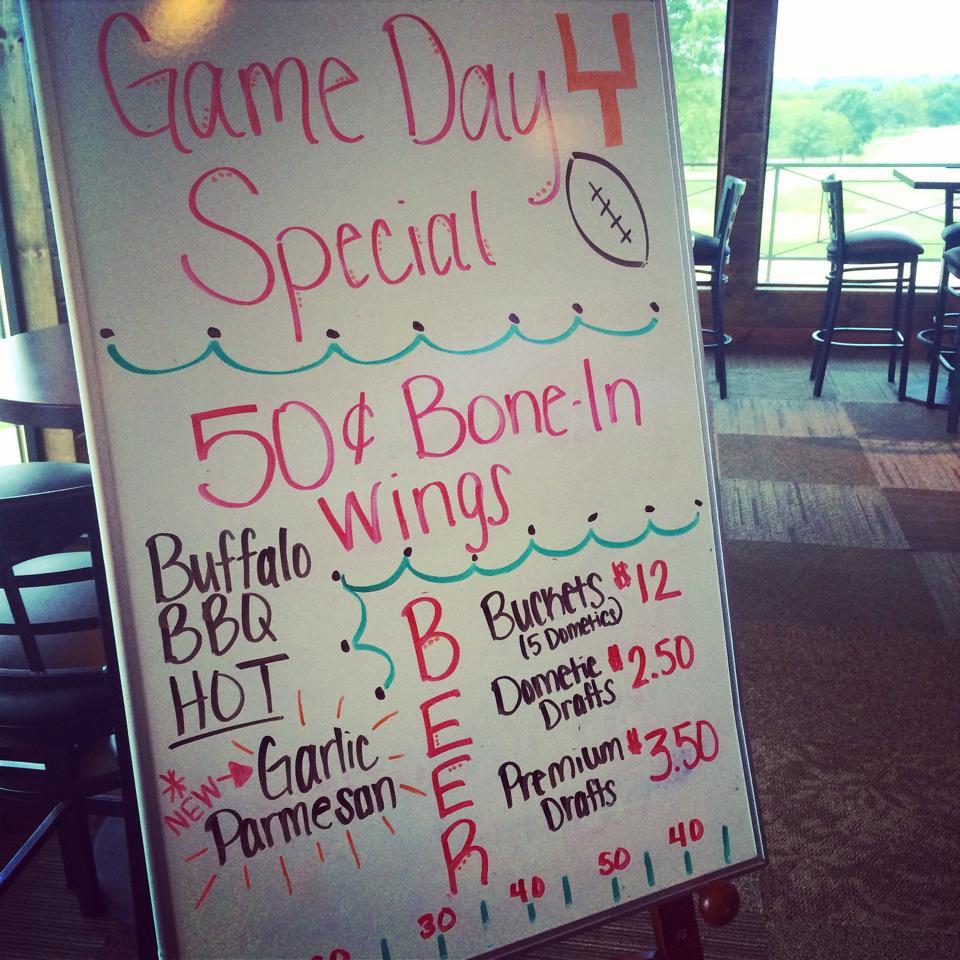 Game Day
Special
50¢ Bone-In
Wings
Buffalo
BBQ
HOT
*NEW→ Garlic
Parmesan
BEER
Buckets $12
(5 Dometics)
Dometic $2.50
Drafts
Premium $3.50
Drafts
30 40 50 40